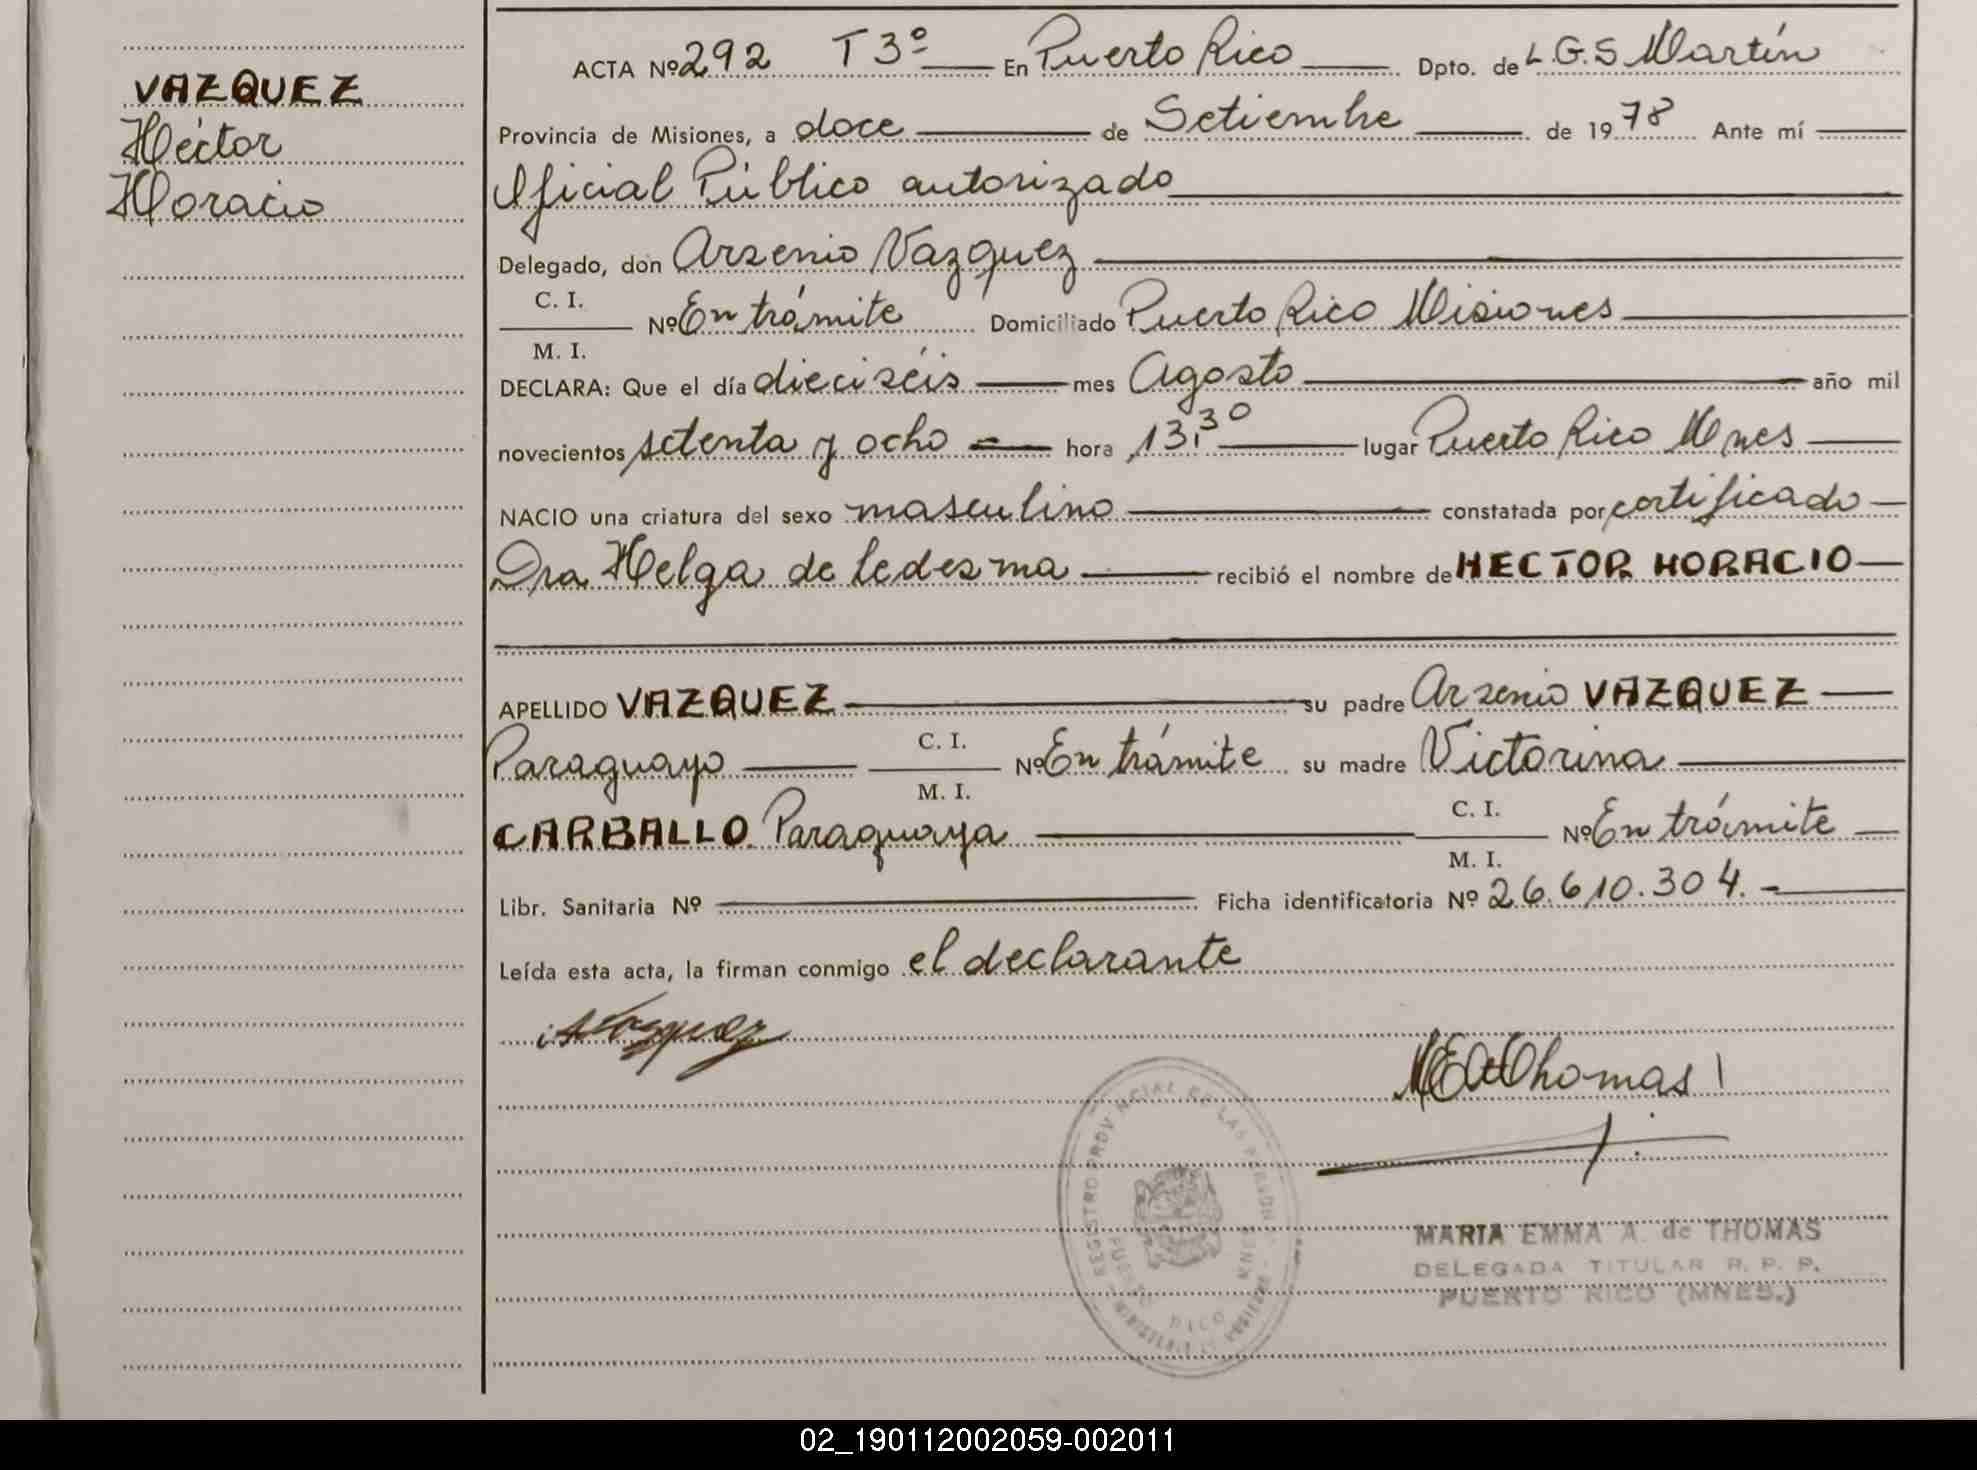 VAZQUEZ
Héctor
Horacio
ACTA Nº 292 T 3º En Puerto Rico Dpto. de L.G.S Martín
Provincia de Misiones, a doce de Setiembre de 1978 Ante mí
Oficial Público autorizado
Delegado, don Arsenio Vazquez
C. I.
Nº En trámite Domiciliado Puerto Rico Misiones
M. I.
DECLARA: Que el día dieciséis mes Agosto año mil
novecientos setenta y ocho hora 13,30 lugar Puerto Rico Mnes
NACIO una criatura del sexo masculino constatada por certificado
Dra Helga de Ledesma recibió el nombre de HECTOR HORACIO
APELLIDO VAZQUEZ su padre Arsenio VAZQUEZ
Paraguayo C. I. Nº En trámite su madre Victorina
M. I.
CARBALLO Paraguaya C. I. Nº En trámite
M. I.
Libr. Sanitaria Nº Ficha identificatoria Nº 26.610.304.-
Leída esta acta, la firman conmigo el declarante
A Vazquez
MEAThomas
REGISTRO PROVINCIAL DE LAS PERSONAS
PUERTO RICO MNES
MARIA EMMA A. de THOMAS
DELEGADA TITULAR R. P. P.
PUERTO RICO (MNES.)
02_190112002059-002011